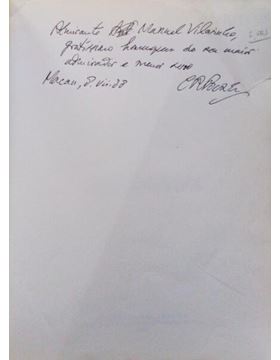 Almirante Manuel Vilarinho,
gratíssima homenagem do seu maior
admirador e menor
Macau, 8.VII.88 CRBoxer